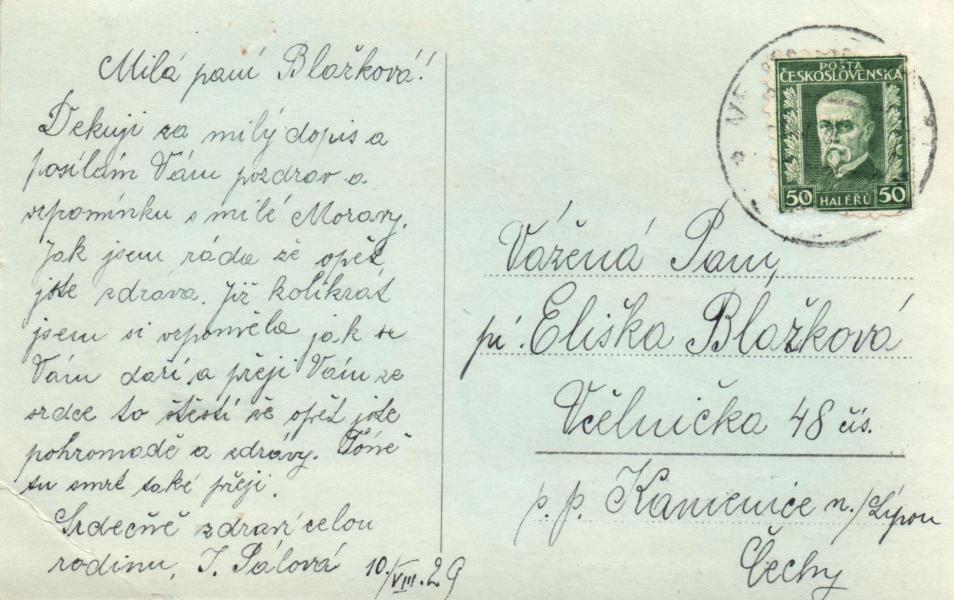 Milá paní Blažková!
Dekuji za milý dopis a
posílám Vám pozdrav a
vzpomínku s milé Moravy.
Jak jsem ráda že opět
jste zdráva. Již kolikrát
jsem si vzpoměla jak se
Vám daří a přeji Vám ze
srdce to štěstí že opět jste
pohromadě a zdrávy. Tóně
tu smrt také přeji.
Srdečně zdraví celou
rodinu, J. Pálová 10/VIII. 29
POŠTA
ČESKOSLOVENSKÁ
50 HALÉŘŮ 50
Vážená Paní,
pí. Eliška Blažková
Včelnička 48 čís.
p. p. Kamenice n./Lípou
Čechy